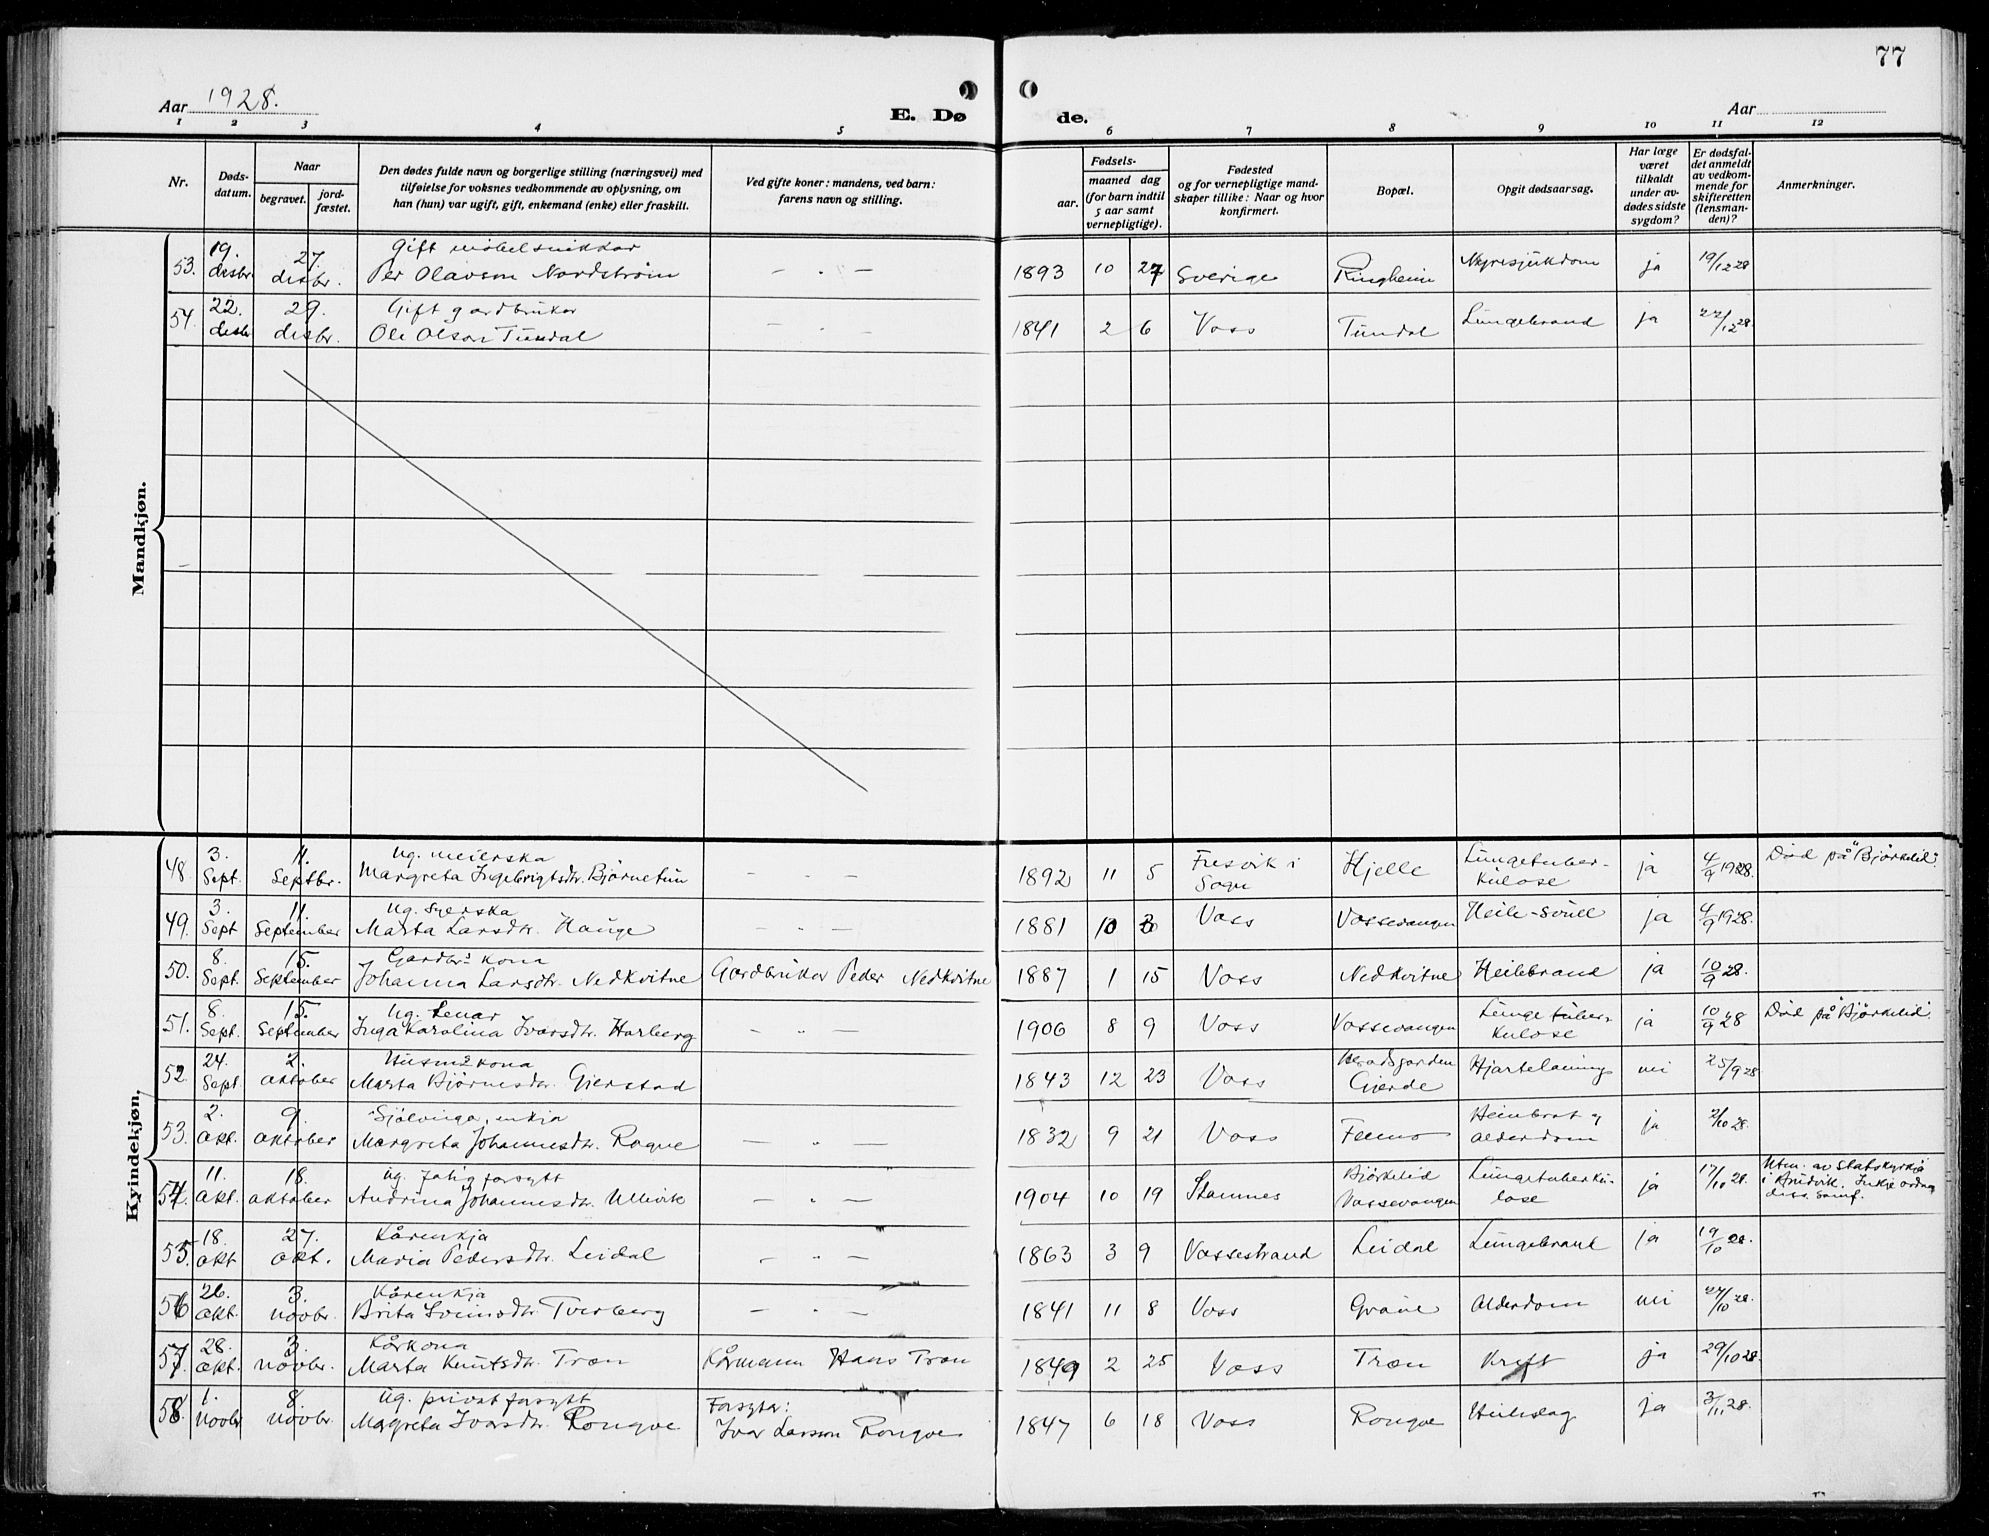 77
Aar 1928.
E. Døde.
Aar
1 2 3 4 5 6 7 8 9 10 11 12
Nr.
Døds-
datum.
Naar
begravet.
jord-
fæstet.
Den dødes fulde navn og borgerlige stilling (næringsvei) med
tilføielse for voksnes vedkommende av oplysning, om
han (hun) var ugift, gift, enkemand (enke) eller fraskilt.
Ved gifte koner: mandens, ved barn:
farens navn og stilling.
Fødsels-
aar.
maaned dag
(for barn indtil
5 aar samt
vernepligtige).
Fødested
og for vernepligtige mand-
skaper tillike: Naar og hvor
konfirmert.
Bopæl.
Opgit dødsaarsag.
Har læge
været
tilkaldt
under av-
dødes sidste
sygdom?
Er dødsfal-
det anmeldt
av vedkom-
mende for
skifteretten
(lensman-
den)?
Anmerkninger.
Mandkjøn.
53. 19. desbr. 27. desbr. Gift møbelsnikkar
Per Olavson Nordström - " - 1893 10 27 Sverige Ringheim Nyresjukdom ja 19/12 28
54. 22. desbr 29. desbr. Gift gardbrukar
Ole Olson Tundal - " - 1841 2 6 Voss Tundal Lungebrand ja 22/12 28.
Kvindekjøn,
48. 3. Sept. 11. Septbr. Ug. meierska
Margreta Ingebrigtsdtr. Bjørnetun - " - 1892 11 5 Fresvik i Sogn Hjelle Lungetuber-
kulose ja 4/9 1928. Död på "Björkelid".
49. 3. Sept 11. September Ug. Syerska
Marta Larsdtr. Hauge - " - 1881 10 Voss Vossevangen Heile-svull ja 4/9 1928.
50. 8. Sept. 15. September Gardbr. kona
Johanna Larsdtr. Nedkvitne Gardbrukar Peder Nedkvitne 1887 1 15 Voss Nedkvitne Heilebrand ja 10/9 28.
51. 8. Sept. 15. September Ug. tenar
Inga Karolina Ivarsdtr. Horberg - " - 1906 8 9 Voss Vossevangen Lunge tuber-
kulose ja 10/9 28 Död på Björkelid.
52. 24. Sept. 2. oktober Husm. kona
Marta Bjørnesdtr. Gjerstad 1843 12 23 Voss Heradsgarden
Gjerde Hjartelaming nei 25/9 28
53. 2. okt. 9. oktober Sjölvinga, enkja
Margreta Johannesdtr. Rogne - " - 1832 9 21 Voss Heimbrot og
alderdom ja 2/10 28.
54. 11. okt. 18. oktober Ug. fatig forsytt
Andrina Johannesdtr. Ullivik - " - 1904 10 19 Stamnes Björkelid
Vossevangen Lungetuberku-
lose ja 17/10 28. Utm. av Statskyrkja
55. 18. okt 27. okt. Kårenkja
Maria Pedersdtr. Leidal - " - 1863 3 9 Vossestrand Leidal Lungebrand ja 19/10 28.
56 26. okt. 3. novbr. Kårenkja
Brita Sveinsdtr. Tverberg - " - 1841 11 8 Voss Graue Alderdom nei 27/10 28.
57. 28. okt. 3. novbr. Kårkona
Marta Knutsdtr. Træn Kårmann Hans Træn 1849 2 25 Voss Træn Kreft ja 29/10 28.
58. 1. novbr 8. novbr. Ug. privat forsytt
Margreta Ivarsdtr. Rongve Forsytar:
Ivar Larsson Rongve 1847 6 18 Voss Rongve Heileslag ja 3/11 28.